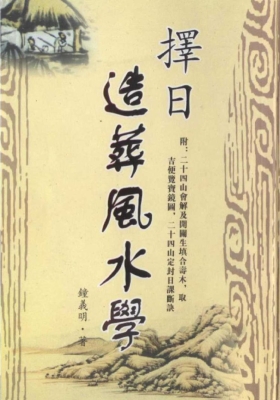 擇日
造葬風水學
附：二十四山會解及開關生填合壽木，取
吉便覽寶鏡圖，二十四山定封日課斷訣
鐘義明・著